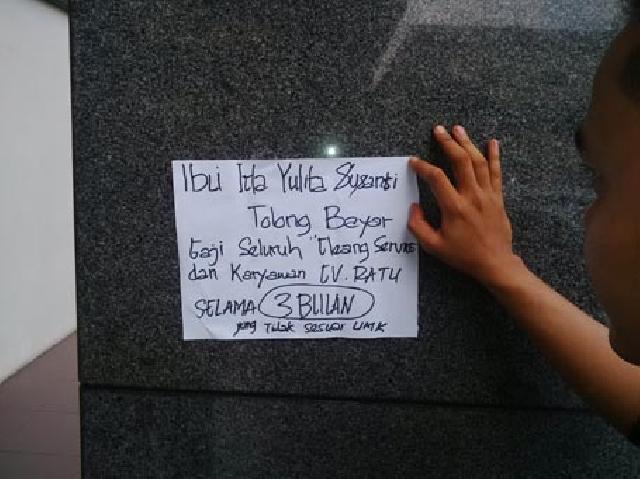 Ibu Ita Yulita Susanti
Tolong Bayar
Gaji Seluruh "Cleang Servis
dan Karyawan CV. RATU
SELAMA 3 BULAN
yang Tidak sesuai UMK